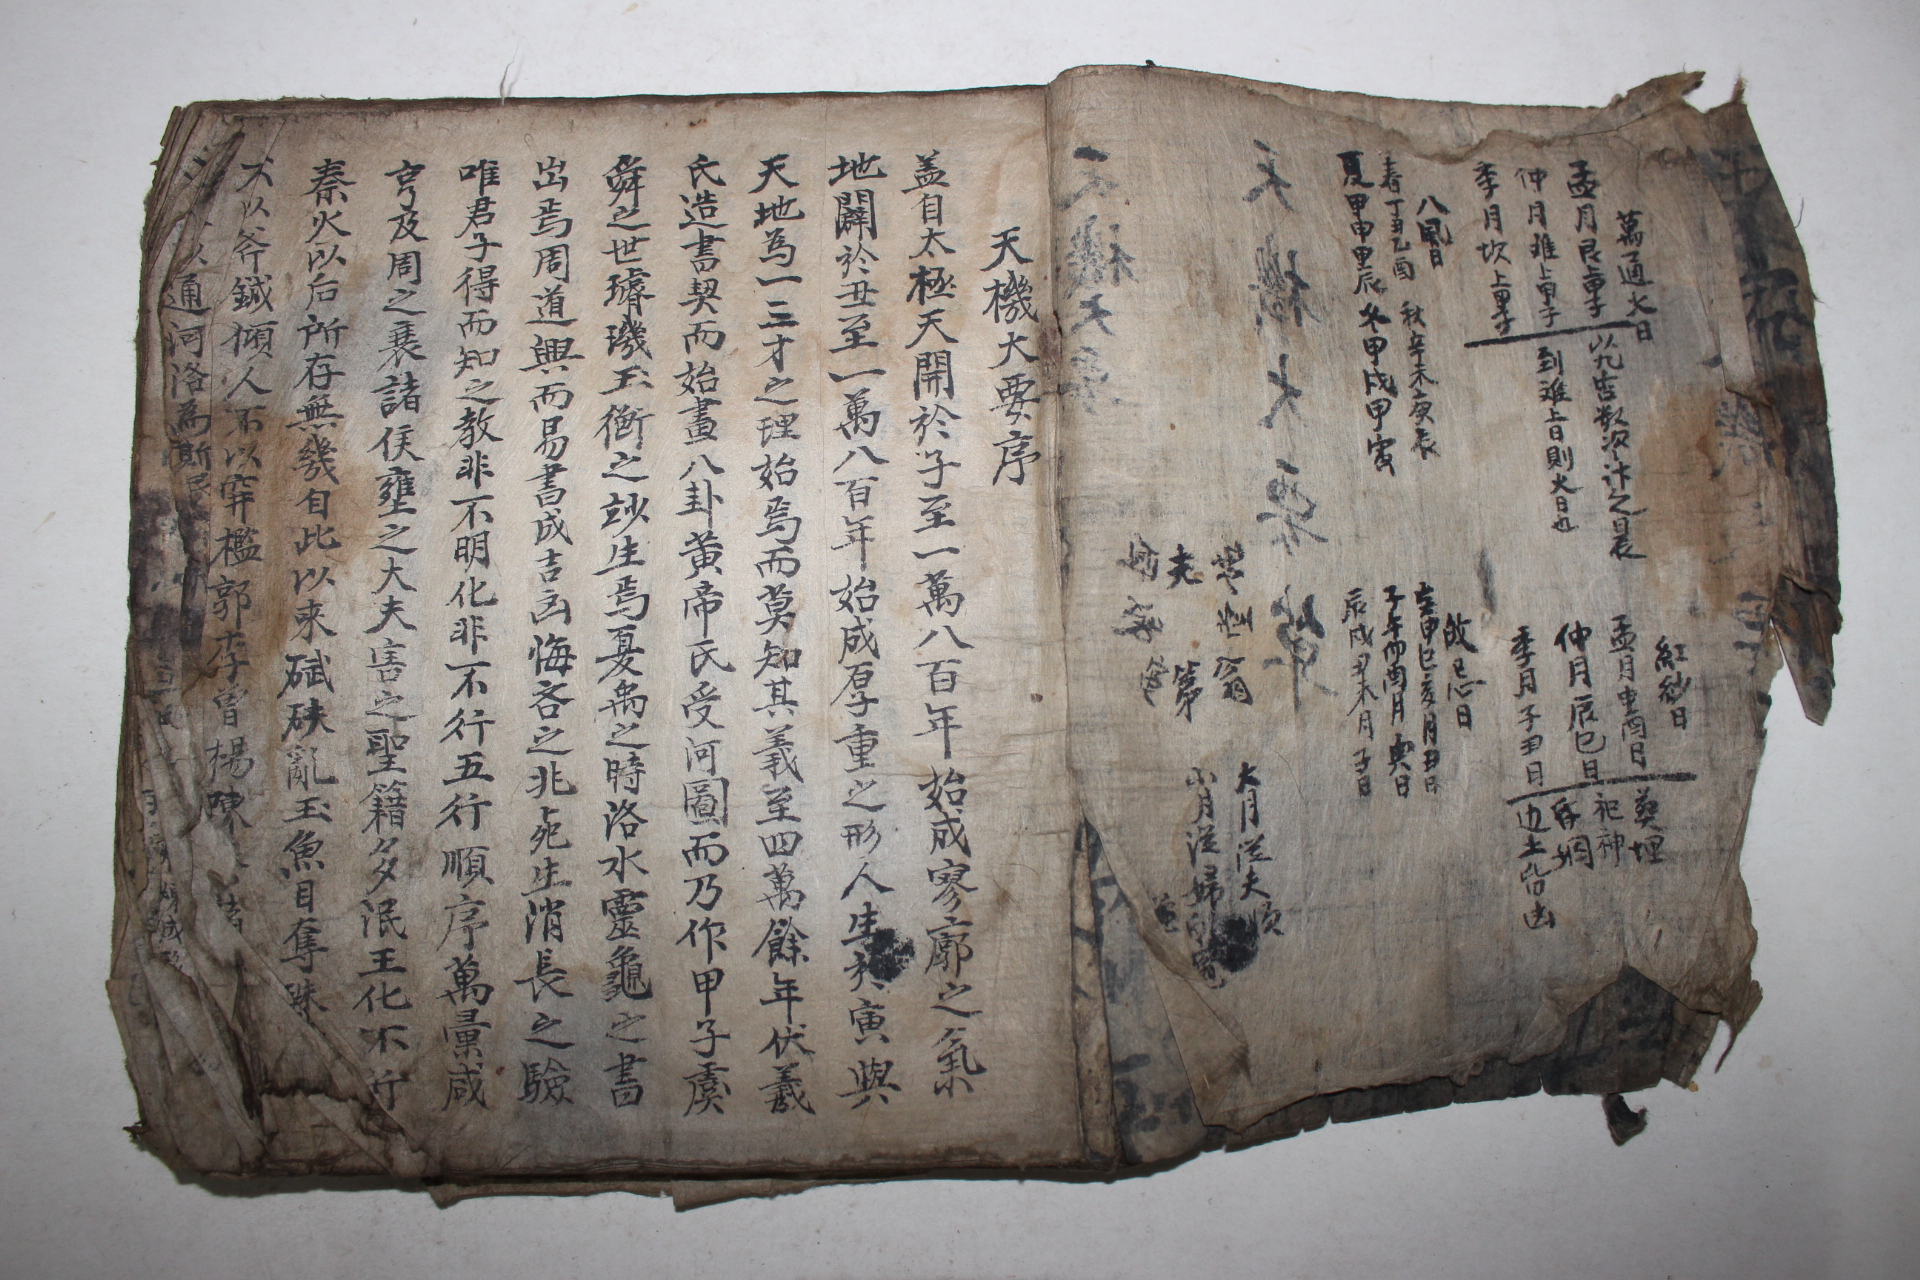 萬通火日
孟月艮上甲子
仲月離上甲子
季月坎上甲子
以九宮数次計之
到離上日則火日也
八風日
春丁丑乙酉
夏甲申甲辰
秋辛未庚辰
冬甲戌甲寅
紅紗日
孟月申酉日
仲月辰巳日
季月子丑日
葬埋
祀神
皆凶
故忌日
寅申巳亥月丑日
子午卯酉月寅日
辰戌丑未月子日
夫
翁
第
大月從夫順
小月從婦
天機大要序
盖自太極天開於子至一萬八百年始成寥廓之氣
地闢於丑至一萬八百年始成厚重之形人生於寅與
天地為一三才之理始焉而莫知其義至四萬餘年伏羲
氏造書契而始畫八卦黄帝氏受河圖而乃作甲子虞
舜之世璿璣玉衡之妙生焉夏禹之時洛水靈龜之書
出焉周道興而易書成吉凶悔吝之兆死生消長之驗
唯君子得而知之教非不明化非不行五行順序萬彙咸
亨及周之衰諸侯壅之大夫害之聖籍多泯王化不行
秦火以后所存無幾自此以来碔砆亂玉魚目奪珠
不以斧鉞傾人不以穽檻郭李曾楊陳
以通河洛為斯民